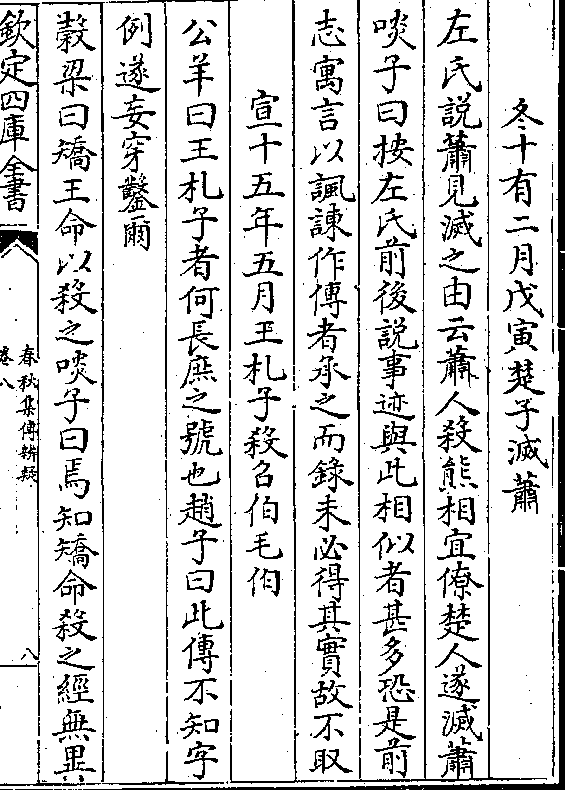 冬十有二月戊寅楚子滅蕭
左氏説蕭見滅之由云蕭人殺熊相宜僚楚人遂滅蕭
啖子曰按左氏前後説事迹與此相似者甚多恐是前
志寓言以諷諫作傳者承之而錄未必得其實故不取
宣十五年五月王札子殺召伯毛伯
公羊曰王札子者何長庶之號也趙子曰此傳不知字
例遂妄穿鑿爾
榖梁曰矯王命以殺之啖子曰焉知矯命殺之經無異
欽定四庫全書
春秋集傳辨疑
卷八
八